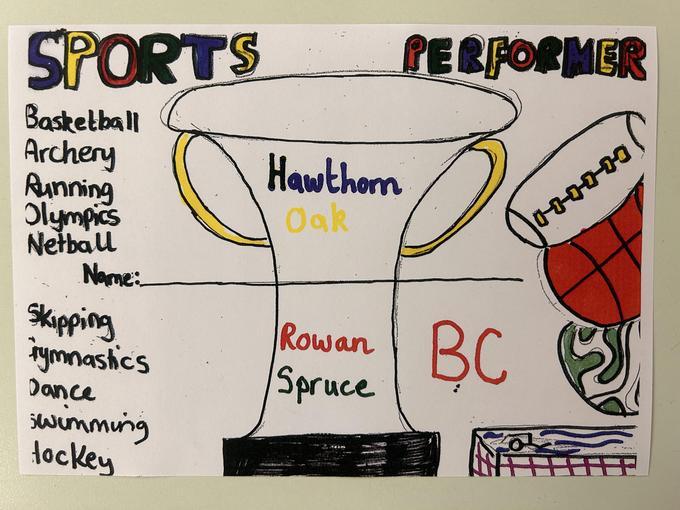 SPORTS PERFORMER
Basketball
Archery
Running
Olympics
Netball
Hawthorn
Oak
Name:
Skipping
Gymnastics
Dance
Swimming
Hockey
Rowan
Spruce
BC